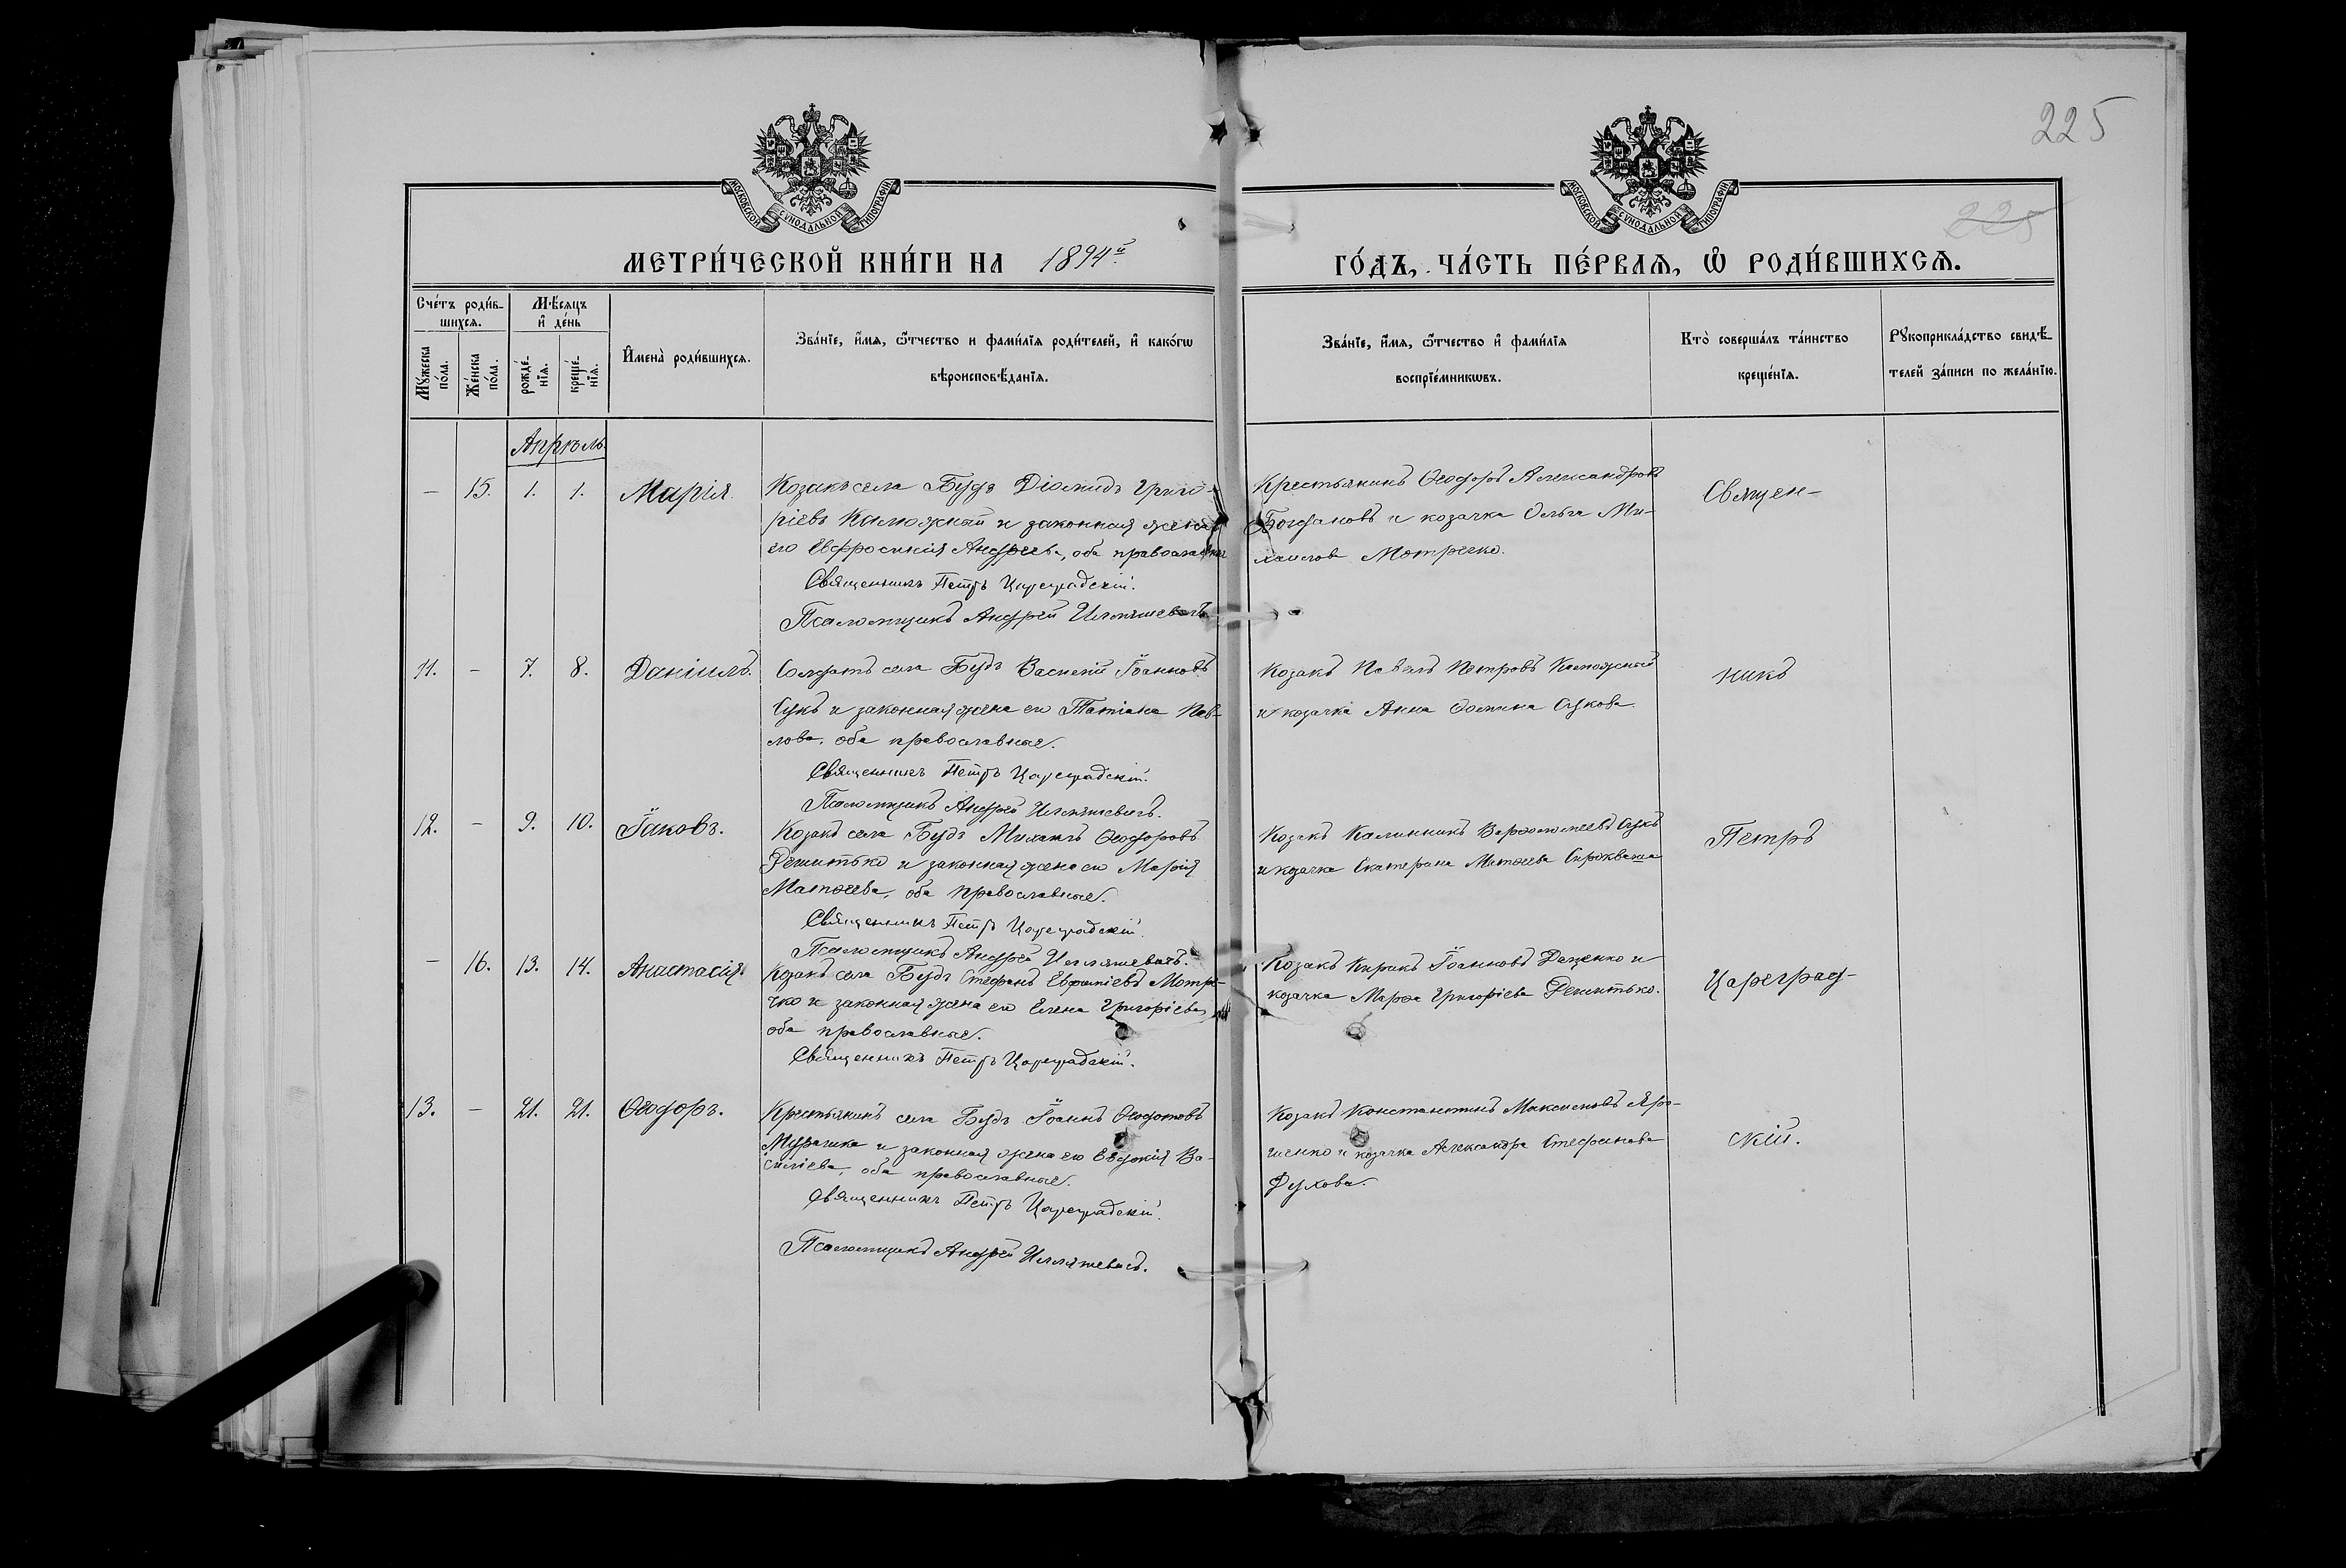 225
МОСКОВСКОЙ СѴНОДАЛЬНОЙ ТИПОГРАФІИ
МОСКОВСКОЙ СѴНОДАЛЬНОЙ ТИПОГРАФІИ
225
МЕТРИ́ЧЕСКОЙ КНИ́ГИ НА 1894й
ГО́ДЪ, ЧА́СТЬ ПЕ́РВАѦ, Ѡ РОДИ́ВШИХСѦ.
Сче́тъ роди́в-
шихсѧ.
Мѣ́сяцъ
и҆ де́нь
Мꙋ́жеска
по́ла.
Же́нска
по́ла.
рожде́-
нїѧ.
креще́-
нїѧ.
И҆мена̀ роди́вшихсѧ.
Зва́нїе, и҆́мѧ, ѻ҆́тчество и фами́лїѧ роди́телей, и҆ како́гѡ
вѣроисповѣ́данїѧ.
Зва́нїе, и҆́мѧ, ѻ҆́тчество и҆ фами́лїѧ
воспрїе́мникѡвъ.
Кто̀ соверша́лъ та́инство
креще́нїѧ.
Рꙋкоприкла́дство свидѣ́-
телей за́писи по жела́нїю.
Апрѣль
— 15. 1. 1. Марія.
Козакъ села Будъ Діомидъ Григо-
ріевъ Калюжный и законная жена
его Евфросинія Андреева, оба православные
Священникъ Петръ Цареградскій.
Псаломщикъ Андрей Илляшевичъ.
Крестьянинъ Ѳеодоръ Александровъ
Богдановъ и козачка Ольга Ми-
хаилова Мотречко.
Священ-
11. — 7. 8. Даніилъ.
Солдатъ села Будъ Василій Іоанновъ
Сукъ и законная жена его Татіана Пав-
лова, оба православные.
Священникъ Петръ Цареградскій.
Псаломщикъ Андрей Илляшевичъ.
Козакъ Павелъ Петровъ Калюжный
и козачка Анна Ѳомина Сукова.
никъ
12. — 9. 10. Іаковъ.
Козакъ села Будъ Михаилъ Ѳеодоровъ
Решитько и законная жена его Марія
Матѳеева, оба православные.
Священникъ Петръ Цареградскій.
Псаломщикъ Андрей Илляшевичъ.
Козакъ Калинникъ Варѳоломеевъ Сукъ
и козачка Екатерина Матѳеева Сыроквашa
Петръ
— 16. 13. 14. Анастасія
Козакъ села Будъ Стефанъ Евѳиміевъ Мотре-
чко и законная жена его Елена Григоріева,
оба православные.
Священникъ Петръ Цареградскій.
Козакъ Кирикъ Іоанновъ Даценко и
козачка Марѳа Григоріева Решитько.
Цареград-
13. — 21. 21. Ѳеодоръ.
Крестьянинъ села Будъ Іоаннъ Ѳеодотовъ
и законная жена его Евдокія Ва-
силіева, оба православные.
Священникъ Петръ Цареградскій.
Псаломщикъ Андрей Илляшевичъ.
Козакъ Константинъ Максимовъ Яро-
шенко и козачка Александра Стефанова
Духова.
скій.